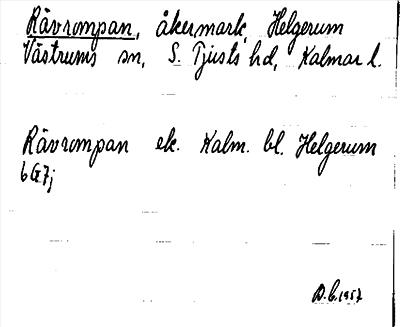 Rävrumpan, åkermark, Helgerum
Västrums sn, S. Tjusts hd, Kalmar l.
Rävrumpan ek. Kalm. bl. Helgerum
6G7j
1957